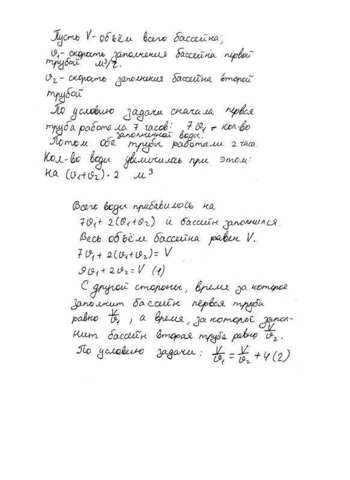 Пусть V - объём всего бассейна,
υ₁ - скорость заполнения бассейна первой
трубой м³/ч.
υ₂ - скорость заполнения бассейна второй
трубой
По условию задачи сначала первая
труба работала 7 часов: 7υ₁ - кол-во
заполненной воды.
Потом обе трубы работали 2 часа.
Кол-во воды увеличилась при этом:
на (υ₁+υ₂)·2 м³
Всего воды прибавилось на
7υ₁ + 2(υ₁+υ₂) и бассейн заполнился.
Весь объём бассейна равен V.
7υ₁ + 2(υ₁+υ₂) = V
9υ₁ + 2υ₂ = V (1)
С другой стороны, время за которое
заполнит бассейн первая труба
равно V/υ₁, а время, за которой запол-
нит бассейн вторая труба равно V/υ₂.
По условию задачи: V/υ₁ = V/υ₂ + 4 (2)